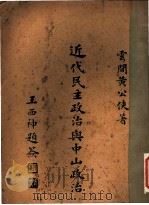 雲間黃公俠著
近代民主政治與中山政治
王西神題簽